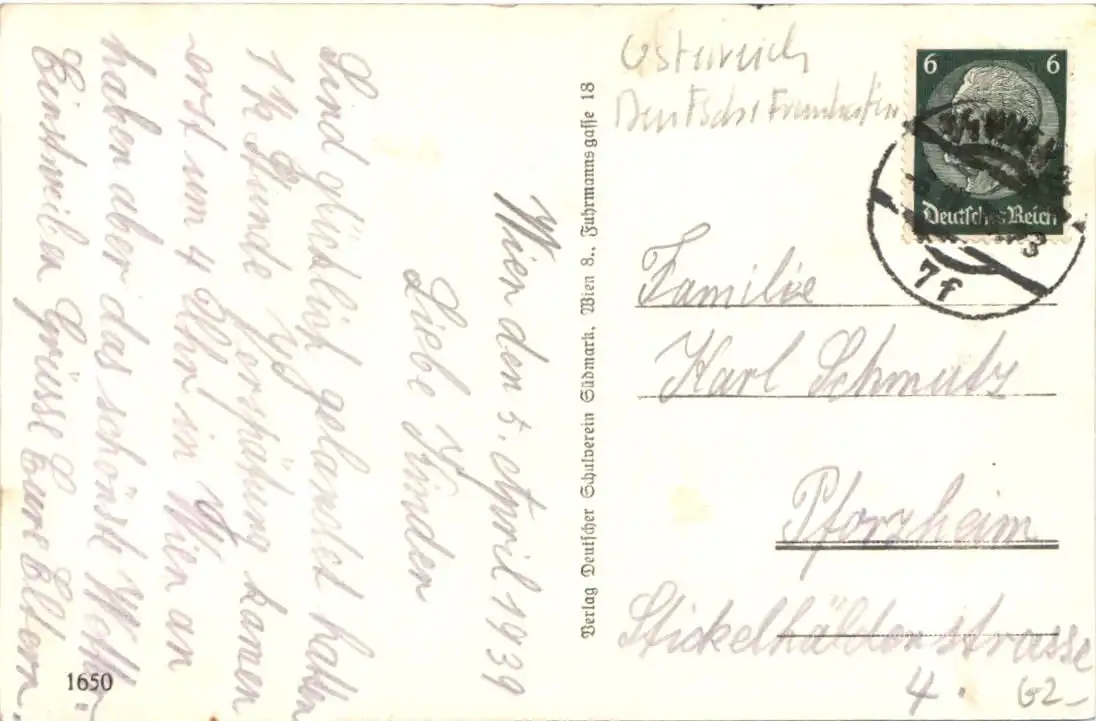 Wien den 5. April 1939
Liebe Kinder
Sind glücklich gelandet hatten
1½ Stunde Verspätung kamen
erst um 4 Uhr in Wien an
haben aber das schönste Wetter.
Einstweilen Grüsse Eure Eltern.
1650
Verlag Deutscher Schulverein Südmark, Wien 8., Fuhrmannsgasse 18
Österreich
Deutsches
6 6
Deutsches Reich
3
7f
Familie
Karl Schmutz
Pforzheim
Stickelhäldenstrasse
4.
G2-